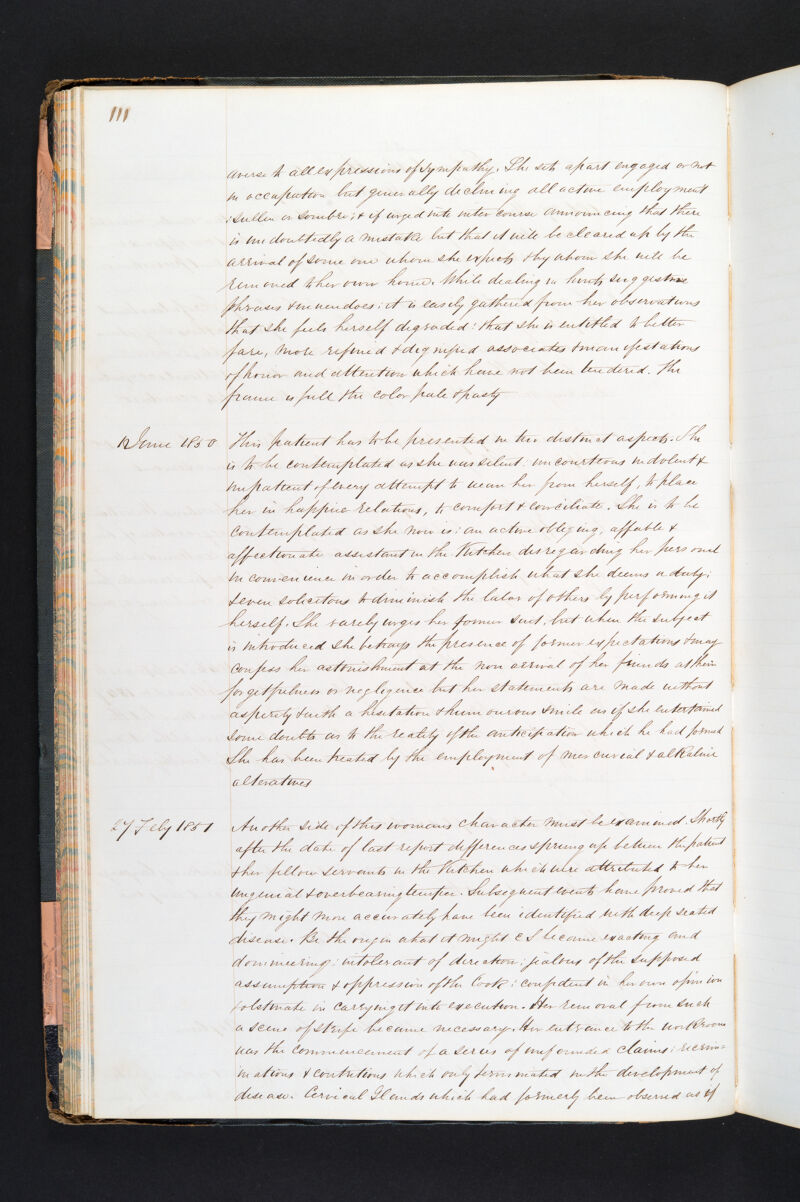 111
averse to all expressions of sympathy. She sits apart engaged or not
in occupation but generally declining all active employment
: sullen or sombre; & if urged into intercourse announcing that there
is undoubtedly a mistake but that it will be cleared up by the
arrival of some one whom she expects & by whom she will be
removed to her own home. While dealing in hints suggestive
phrases & inuendoes: it is easily gathered from her observations
that she feels herself degraded: that she is entitled to better
fare, more refined & dignified associates & manifestations
of honor and attention which have not been tendered. The
frame is full the color pale & pasty
12 June 1850 This patient has to be presented in two distinct aspects. She
is to be contemplated as she was silent: uncourteous indolent &
impatient of every attempt to wean her from herself, to place
her in happier relations, to comfort & conciliate. She is to be
contemplated as she now is: an active obliging, affable &
affectionate assistant in the Kitchen disregarding her personal
inconvenience in order to accomplish what she deems a duty:
& even solicitous to diminish the labor of others by performing it
herself. She rarely urges her former suit, but when the subject
is introduced she betrays the presence of former expectations & may
confess her astonishment at the non arrival of her friends at their
forgetfulness or negligence but her statements are made without
asperity & with a hesitation & humourous smile as if she entertained
some doubts as to the reality of the anticipation which he had formed
She has been treated by the employment of mercurial & alkaline
alteratives
27 Feby 1851 Another side of this womans character must be examined. Shortly
after the date of last report differences sprung up between the patient
& her fellow servants in the Kitchen which were attributed to her
ungenial & overbearing temper. Subsequent events have proved that
they might more accurately have been identified with deep seated
disease. Be the origin what it might C S became exacting and
domineering: intolerant of direction: jealous of the supposed
assumption & oppression of the Cook: confident in her own opinion
& obstinate in carrying it into execution. Her removal from such
a scene of strife became necessary. Her entrance to the workroom
was the commencement of a series of unfounded claims: recrim=
inations & contentions which only terminated in the development of
disease. Cervical Glands which had formerly been observed as if